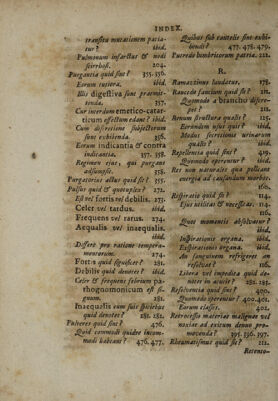 INDEX.
transitu mutationem patia-
tur? ibid.
Pulmonum infarctus & nodi
scirrhosi. 204.
Purgantia quid sint? 355. 356.
Eorum tutiora. ibid.
Illis digestiva sunt præmit-
tenda. 357.
Cur interdum emetico-catar-
ticum effectum edant? ibid.
Cum discretione subjectorum
sunt exhibenda. 356.
Eorum indicantia & contra
indicantia. 357. 358.
Regimen ejus, qui purgans
assumpsit. 358.
Purgatorius actus quid sit? 355
Pulsus quid & quotuplex? 272.
Est vel fortis vel debilis. 273.
Celer vel tardus. ibid.
Frequens vel rarus. 274.
Aequalis vel inaequalis.
ibid.
Differt pro ratione tempera-
mentorum. 274.
Fortis quid significet? 281.
Debilis quid denotet? ibid.
Celer & frequens febrium pa-
thognomonicum est si-
gnum. 281.
Inaequalis cum suis speciebus
quid denotet? 281. 282.
Pulveres quid sint? 476.
Quid commodi quidve incom-
modi habeant? 476. 477.
Quibus sub cautelis sint exhi-
bendi? 477. 478. 479.
Putredo lumbricorum patria. 222.
R.
Ramazzinus laudatur. 178.
Raucedo faucium quid sit? 211.
Quomodo a brancho diffe-
rat? ibid.
Renum structura qualis? 125.
Eorundem usus quis? ibid.
Modus secretionis urinarum
qualis? ibid.
Repellentia quid sint? 419.
Quomodo operentur? ibid.
Res non naturales qua polleant
energia ad causandum morbos
160.
Respiratio quid sit? 114.
Ejus utilitas & necessitas. 114.
116.
Quot momentis absolvatur?
ibid.
Inspirationis organa. ibid.
Exspirationis organa. ibid.
An sanguinem refrigeret an
resolvat? 116.
Libera vel impedita quid de-
notet in acutis? 282. 283.
Resolventia quid sint? 400.
Quomodo operentur? 400. 401.
Eorum classes. 402.
Retrocessio materiae malignae vel
noxiae ad exitum denuo pro-
movenda? 395. 396. 397.
Rheumatismus quid sit? 211.
Retento-